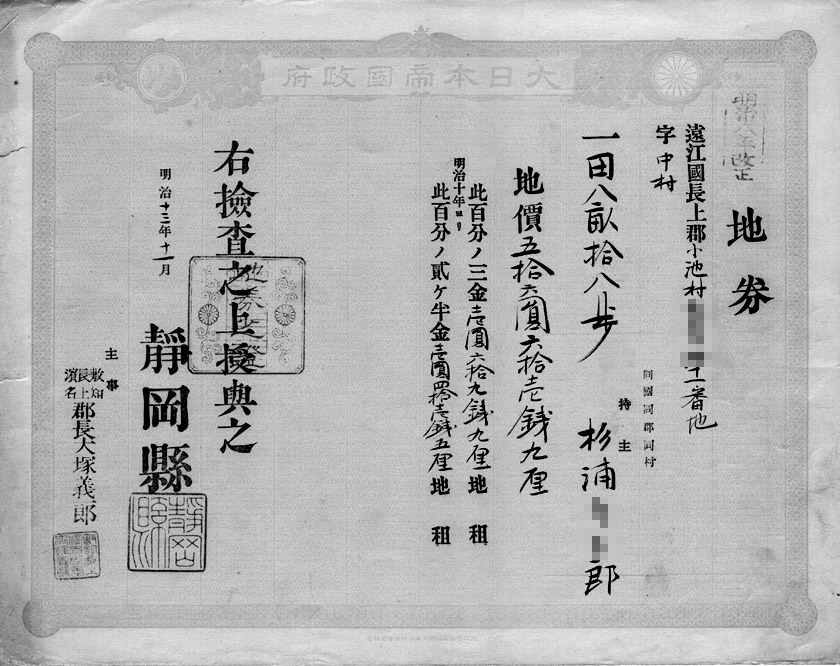 大日本帝國政府
明治八年改正
地券
遠江國長上郡小池村
十一番地
字中村
同國同郡同村
持主
杉浦
郎
一田八畝拾八歩
地價五拾六圓六拾壱銭九厘
此百分ノ三金壱圓六拾九銭九厘地租
明治十年ヨリ
此百分ノ貳ケ半金壱圓四拾壱銭五厘地租
右撿査之上授與之
明治十三年十一月
靜岡縣
主事
敷知
長上
濱名
郡長大塚義一郎
地券之證
靜岡縣